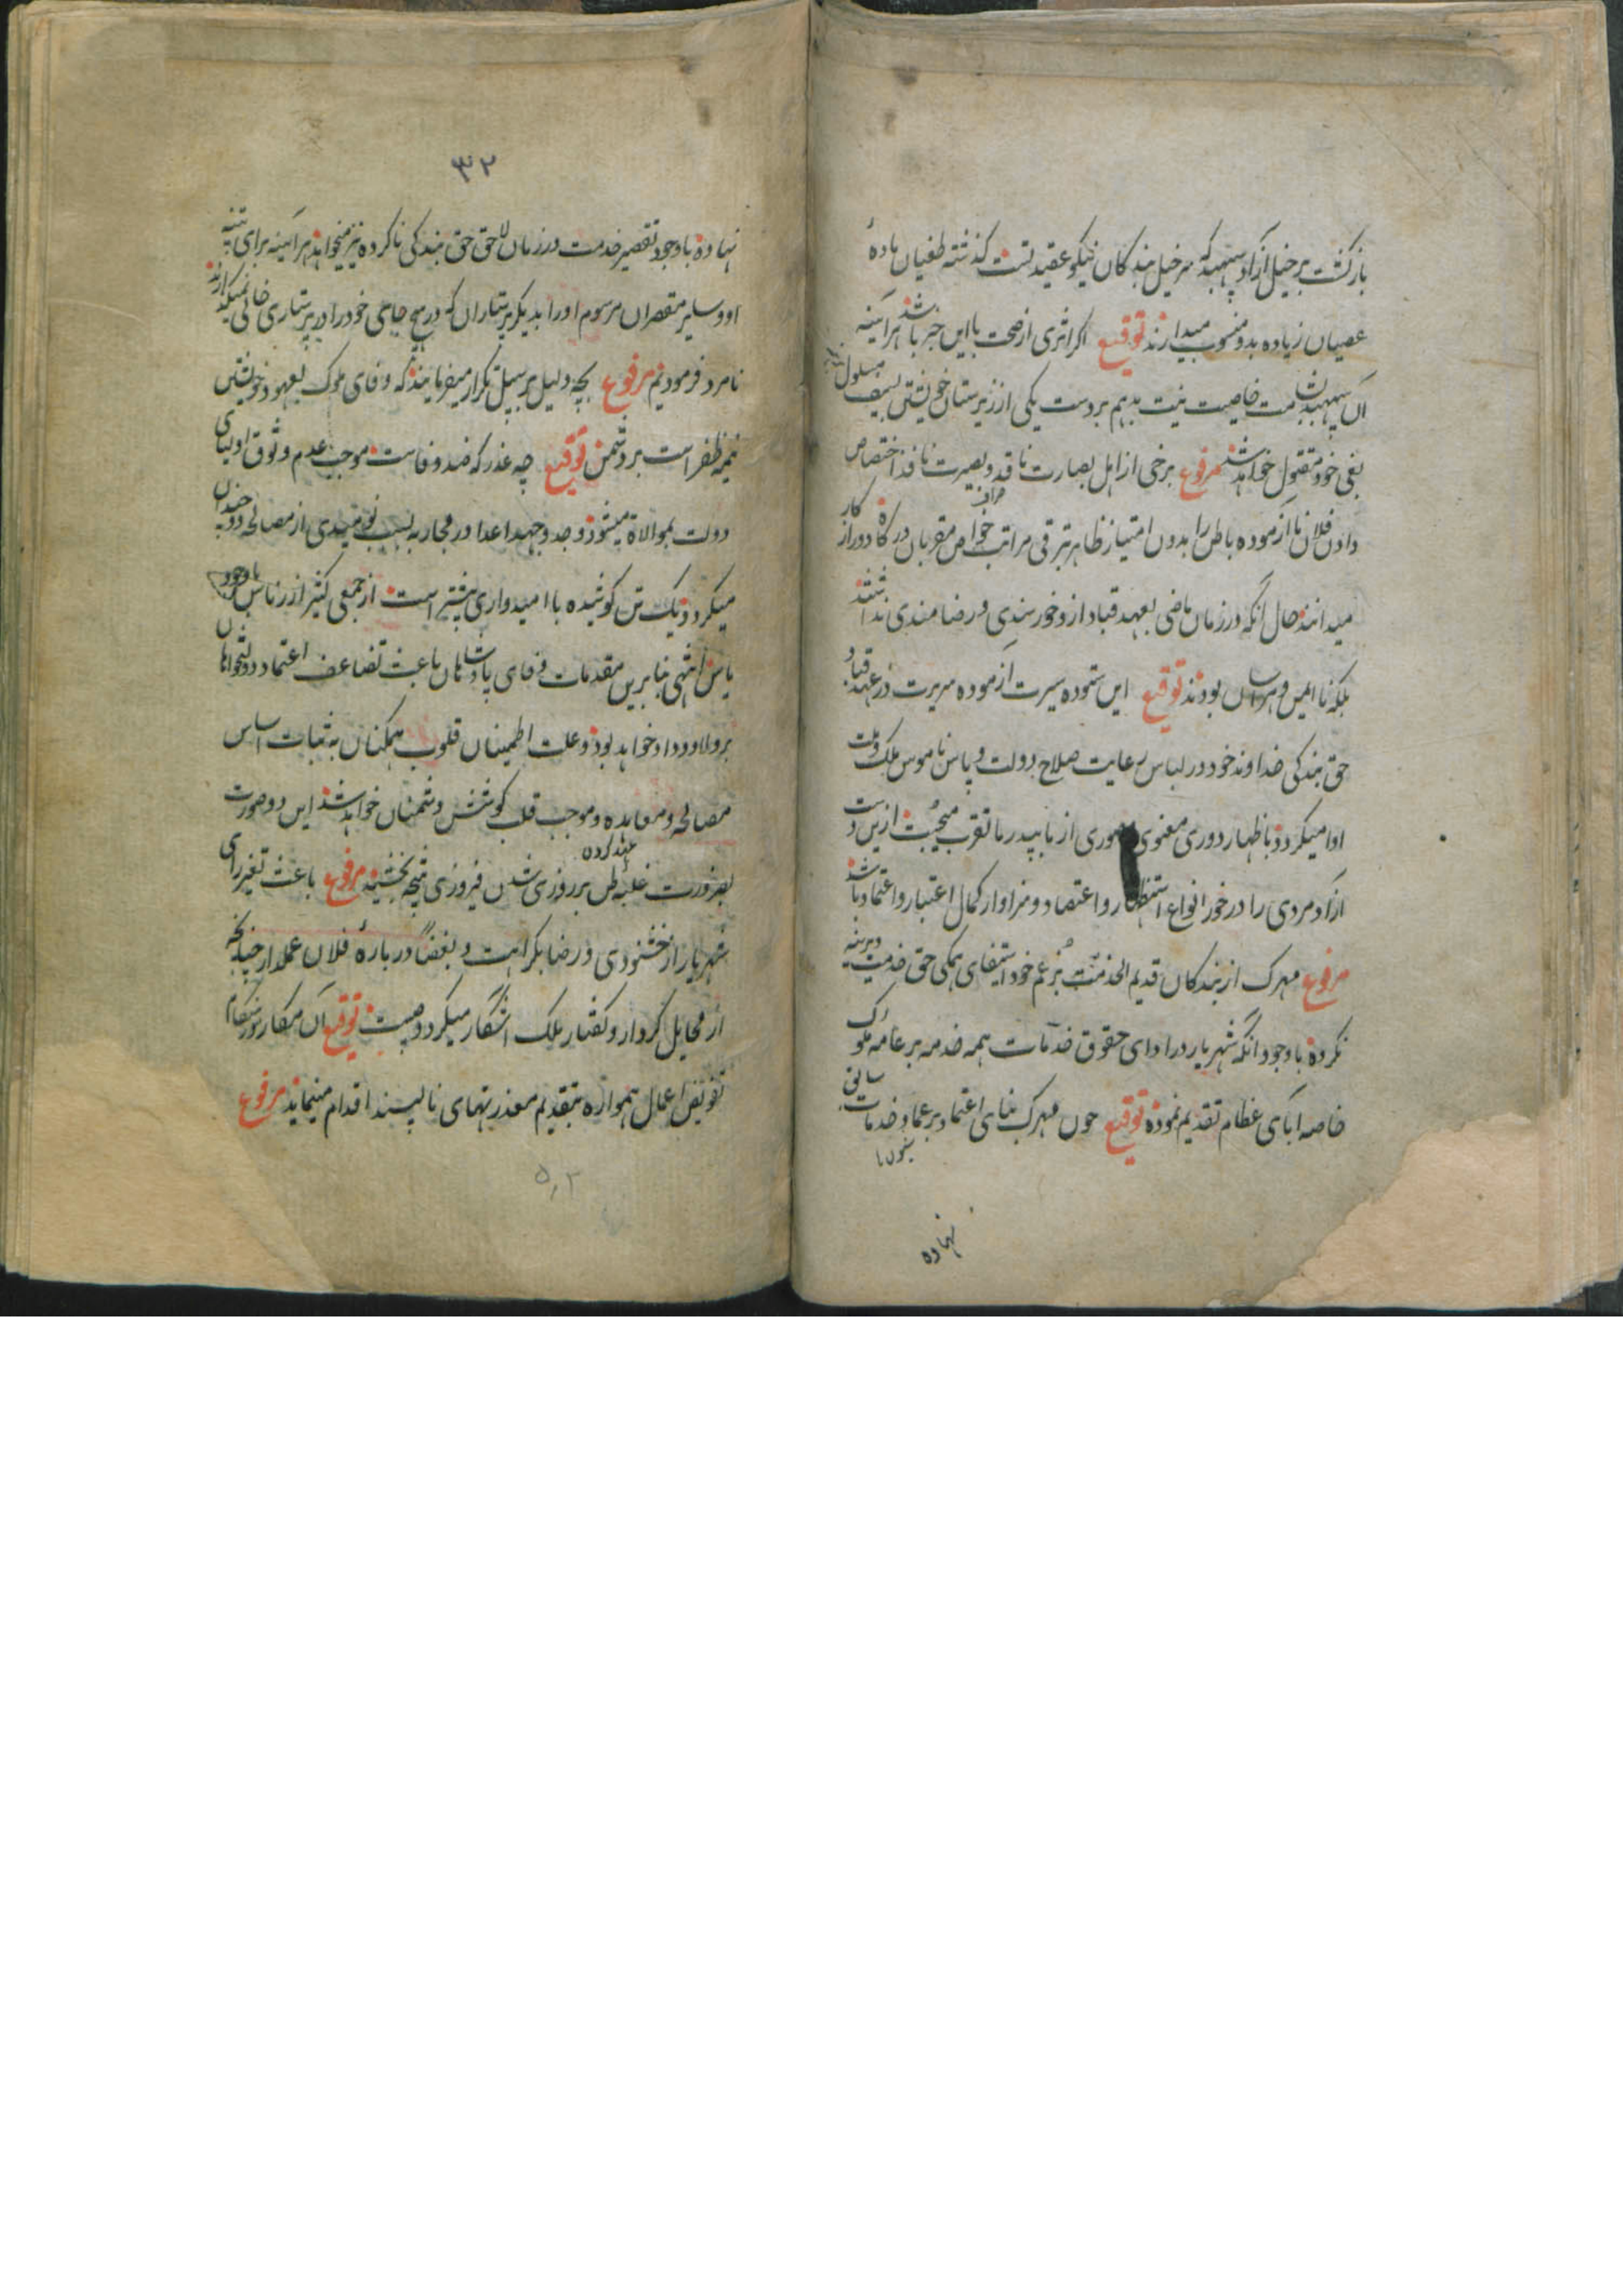 بازگشت بر خیل آزاد سپهبد که سرخیل بندگان نیکو عقیدتست گذشته طغیان ماده
عصیان زیاده بدو منسوب میدارند توقیع اگر اثری از صحت با این خبر باشد هر آینه
آن سپهبد بشامت خاصیت نیت بدهم بر دست یکی از زیردستان خویشتن بسیف مسلول
بغی خود مقتول خواهد شد مرفوع برخی از اهل بصارت ناقد و بصیرت نافذ اختصاص
دادن فلان ناآزموده باطن را بدون امتیاز ظاهر بترقی مراتب خواص مقربان درگاه دور از کار
میدانند حال آنکه در زمان ماضی بعهد قباد ازو خورسندی و رضامندی نداشتند
بلکه ناایمن و هراسان بودند توقیع این ستوده سیرت آزموده سریرت در عهد قباد
حق بندگی خداوند خود در لباس رعایت صلاح دولت و پاس ناموس ملک و ملت
ادا میکرد و باظهار دوری معنوی صوری از ما بپدر ما تقرب میجست ازین دست
آزادمردی را در خور انواع استظهار و اعتضاد و سزاوار کمال اعتبار و اعتماد باشد
مرفوع مهرک از بندگان قدیم الخدمت بزعم خود استیفای همگی حق خدمت دیرینه
نکرده با وجود آنکه شهریار در ادای حقوق خدمات همه خدمه بر عامه ملوک
خاصه آبای عظام تقدیم نموده توقیع چون مهرک بنای اعتماد بر عماد خدمات سابق
نهاده
۳۲
نهاده با وجود تقصیر خدمت در زمان لاحق حق بندگی ناکرده نیز میخواهد هر آینه برای تنبیه
او و سایر مقصران مرسوم او را بدیگر پرستاران که در هیچ جای خود را در پرستاری خالی نمیگذارند
نامزد فرمودیم مرفوع بچه دلیل بر سبیل تکرار میفرمایند که وفای ملوک بعهود خویشتن
تتمه ظفر است بر دشمن توقیع چه عذر که ضد وفاست موجب عدم وثوق اولیای
دولت بموالاة میشود و جد و جهد اعدا در محاربه بسبب نومیدی از مصالحه دو چندان
میکردد و یک تن کوشیده با امیدواری بیشتر است از جمعی کثیر از ناس با وجود
یاس انتهی بنابرین مقدمات وفای پادشاهان باعث تضاعف اعتماد دولتخواهان
بر ولا و وداد خواهد بود و علت اطمینان قلوب همکنان به ثبات اساس
مصالحه و معاهده و موجب قلت کوشش دشمنان خواهد شد این دو صورت
بضرورت غلبه ظن بر روزی شدن فیروزی نتیجه بخشید مرفوع باعث تغیر رای
شهریار از خشنودی و رضا بکراهت و بغضا درباره فلان عملدار چنانکه
از مخایل کردار و گفتار ملک آشکار میکردد چیست توقیع آن مکار
تفویض اعمال همواره بتقدیم معذرتهای ناپسند اقدام مینماید مرفوع
۵۲